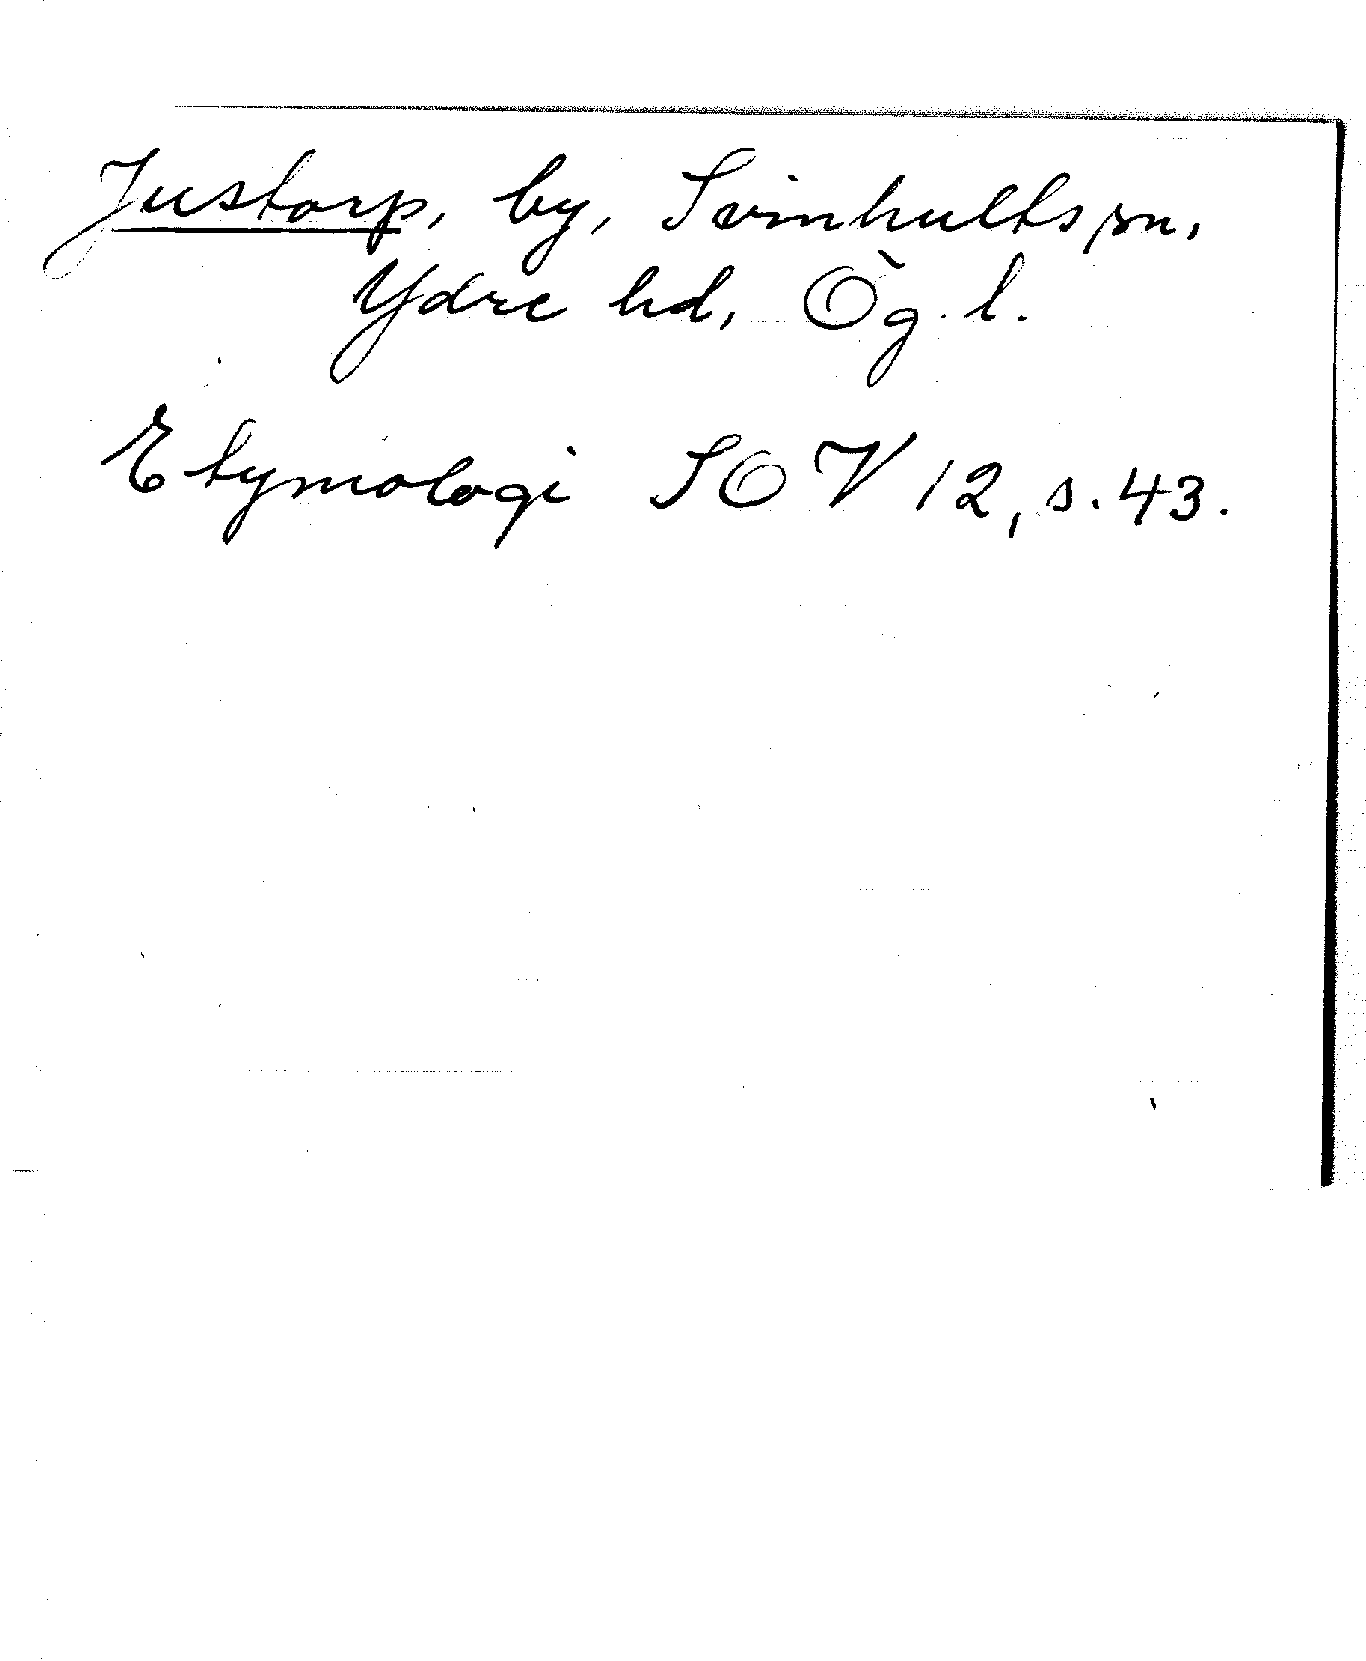 Justorp, by, Svinhults sn,
Ydre hd, Ög. l.
Etymologi SOV 12, s. 43.